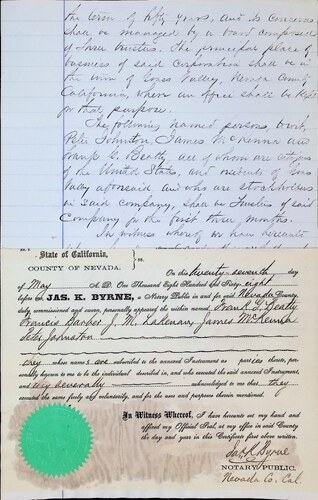 the term of fifty years, and its concerns
shall be managed by a board composed
of three trustees. The principal place of
business of said Corporation shall be in
the town of Grass Valley, Nevada County
California, where an office shall be kept
for that purpose.
The following named persons, to wit,
Peter Johnston, James McKenna and
Frank G. Beatty, all of whom are citizens
of the United States, and residents of Grass
Valley aforesaid and who are stockholders
in said company, shall be Trustees of said
Company for the first three months.
In witness whereof we have hereunto
State of California,
COUNTY OF NEVADA.
On this twenty seventh day
of May A. D. One Thousand Eight Hundred and Sixty eight
before me JAS. K. BYRNE, a Notary Public in and for said Nevada County,
duly commissioned and sworn, personally appeared the within named Frank G. Beatty
Francis Barker J. M. Lakenan, James McKenna
Peter Johnston
they whose names are subscribed to the annexed Instrument as parties thereto, personally known to me to be the individual described in, and who executed the said annexed Instrument,
and they severally acknowledged to me that they
executed the same freely and voluntarily, and for the uses and purposes therein mentioned.
In Witness Whereof, I have hereunto set my hand and
affixed my Official Seal, at my office in said County
the day and year in this Certificate first above written.
Jas K Byrne
NOTARY PUBLIC.
Nevada Co. Cal.